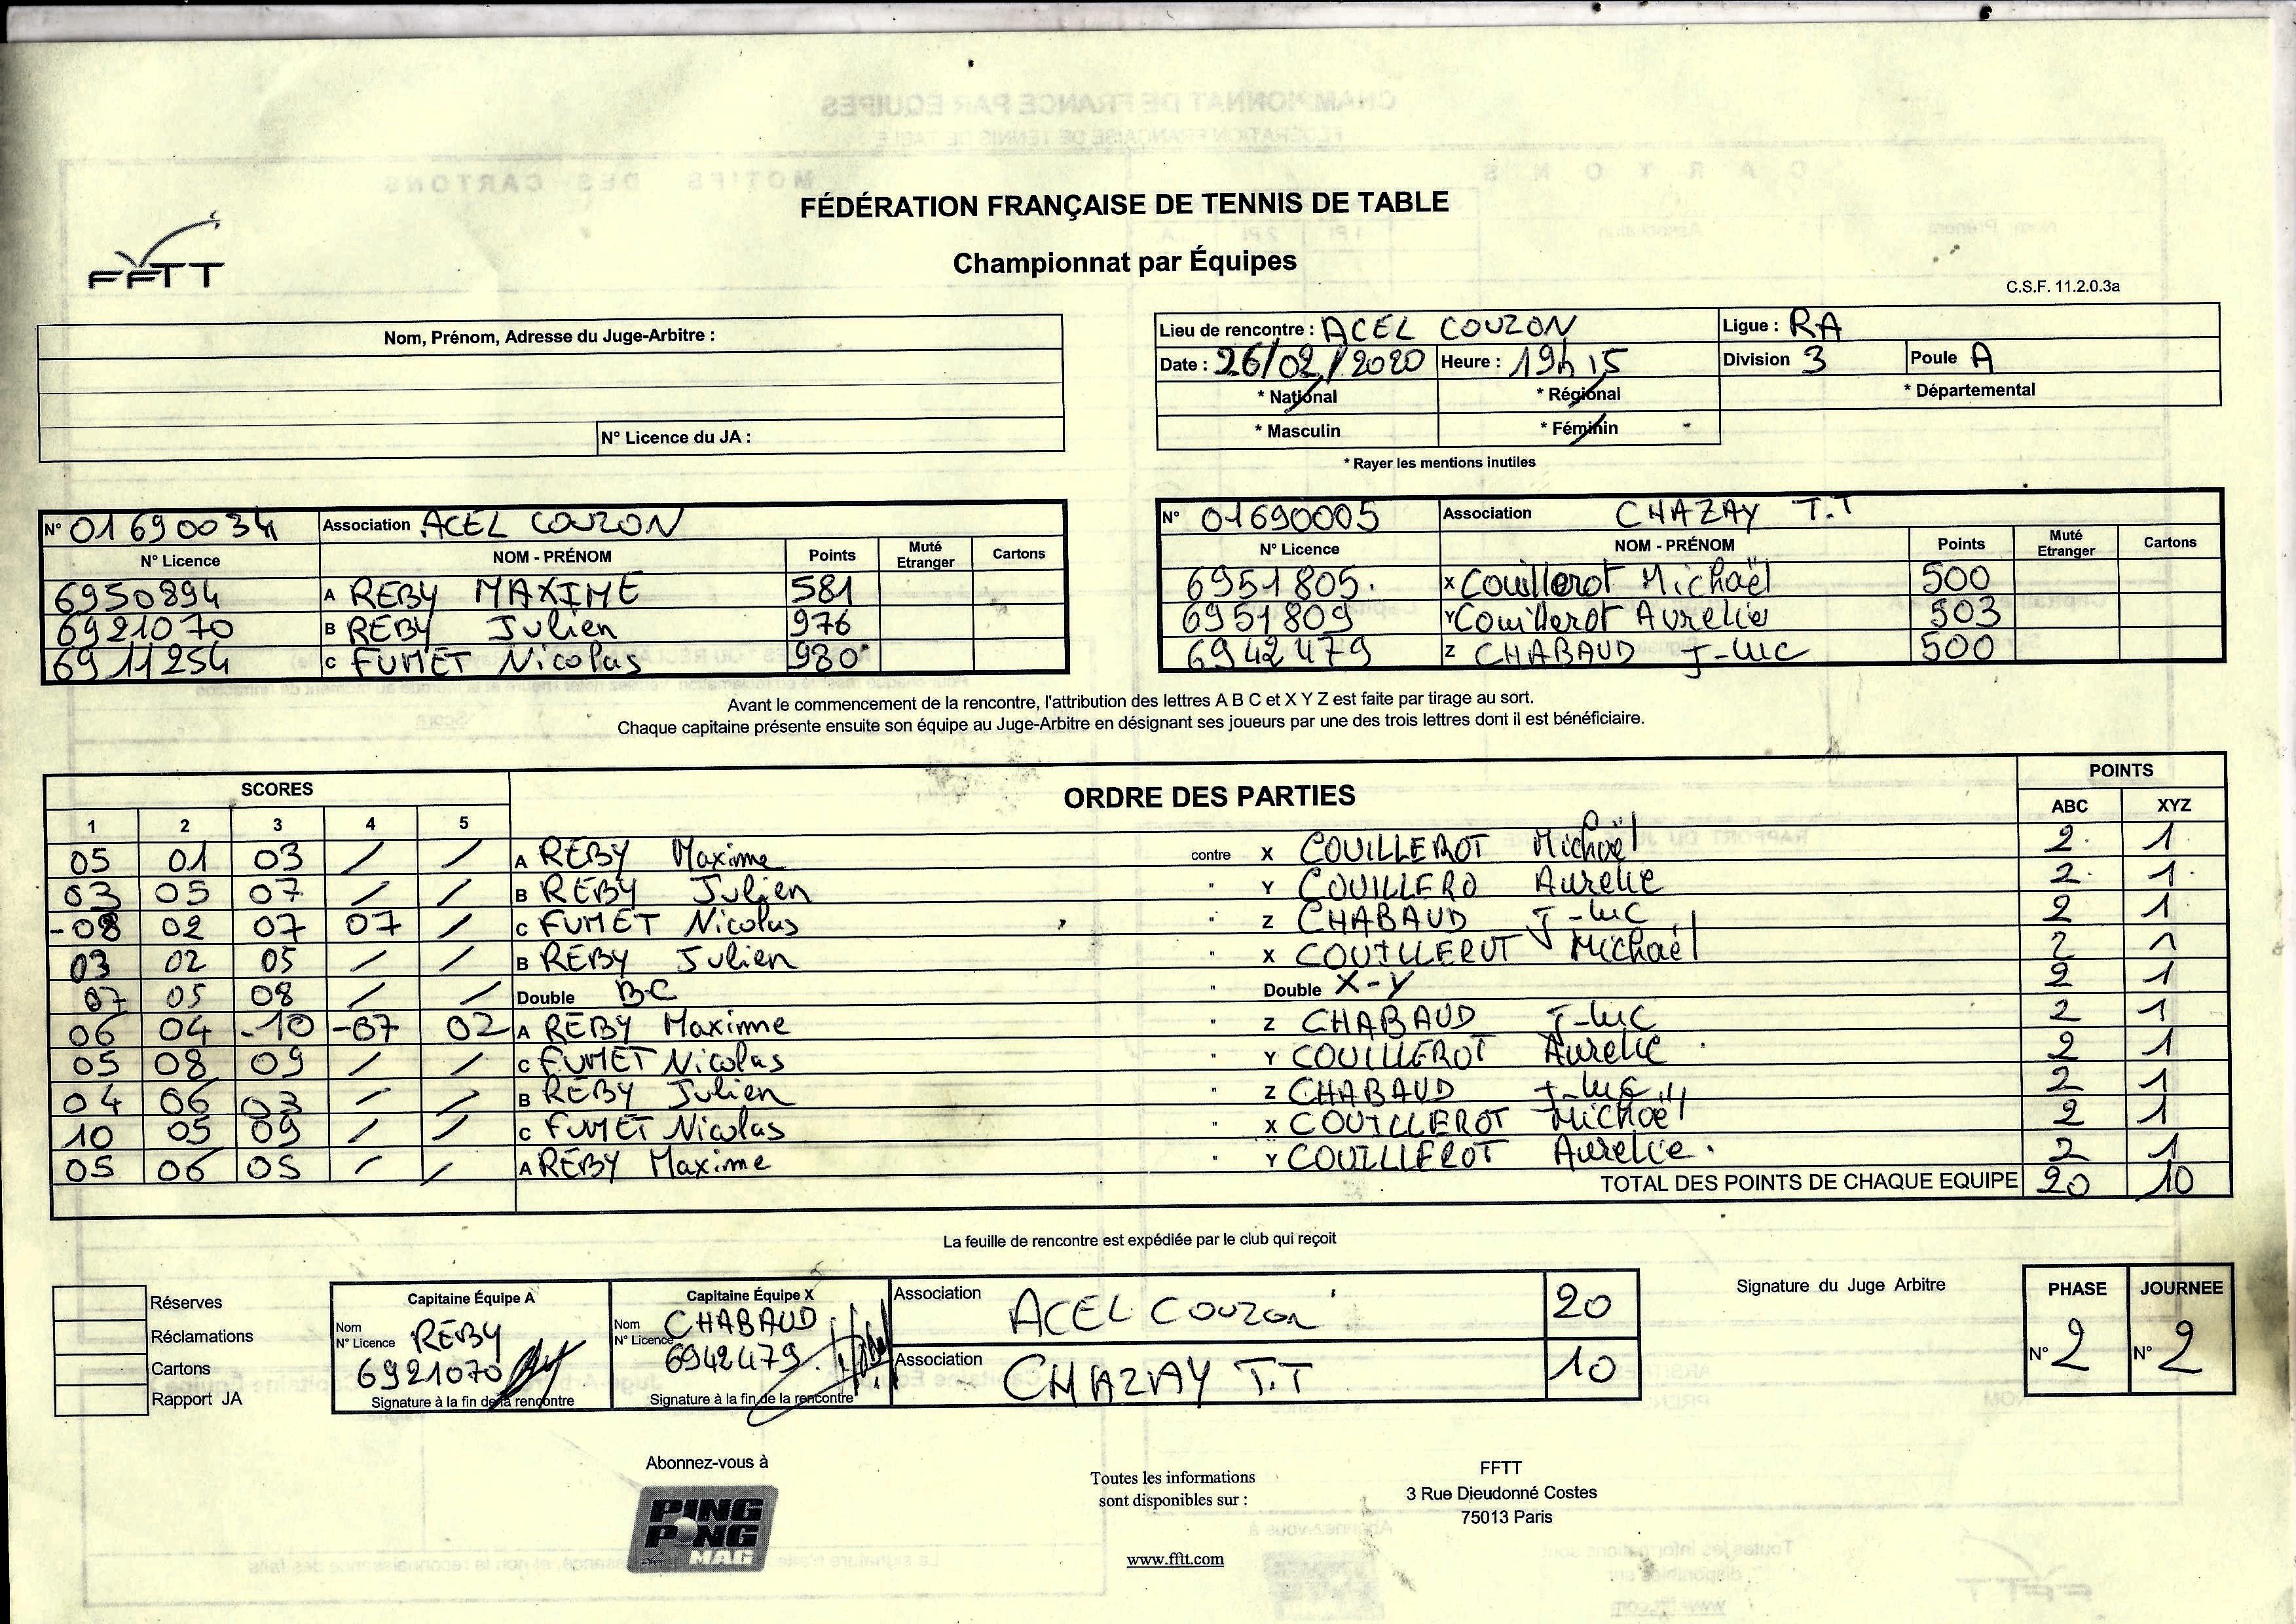 FÉDÉRATION FRANÇAISE DE TENNIS DE TABLE
Championnat par Équipes
FFTT
C.S.F. 11.2.0.3a
Nom, Prénom, Adresse du Juge-Arbitre :
N° Licence du JA :
Lieu de rencontre : ACEL COUZON Ligue : RA
Date : 26/02/2020 Heure : 19h15 Division 3 Poule A
* National * Régional * Départemental
* Masculin * Féminin
* Rayer les mentions inutiles
N° 01690034 Association ACEL COUZON
N° Licence NOM - PRÉNOM Points Muté Etranger Cartons
6950894 A REBY MAXIME 581
6921070 B REBY Julien 976
6911254 C FUMET Nicolas 980
N° 01690005 Association CHAZAY T.T
N° Licence NOM - PRÉNOM Points Muté Etranger Cartons
6951805. X Couillerot Michaël 500
6951809 Y Couillerot Aurelie 503
6942479 Z CHABAUD J-LUC 500
Avant le commencement de la rencontre, l'attribution des lettres A B C et X Y Z est faite par tirage au sort.
Chaque capitaine présente ensuite son équipe au Juge-Arbitre en désignant ses joueurs par une des trois lettres dont il est bénéficiaire.
SCORES ORDRE DES PARTIES POINTS
1 2 3 4 5 ABC XYZ
05 01 03 / / A REBY Maxime contre X COUILLEROT Michaël 2 1
03 05 07 / / B REBY Julien " Y COUILLERO Aurelie 2 1
-08 02 07 07 / C FUMET Nicolas " Z CHABAUD J-LUC 2 1
03 02 05 / / B REBY Julien " X COUILLEROT Michaël 2 1
07 05 08 / / Double B-C " Double X-Y 2 1
06 04 -10 -07 02 A REBY Maxime " Z CHABAUD J-LUC 2 1
05 08 09 / / C FUMET Nicolas " Y COUILLEROT Aurelie 2 1
04 06 03 / / B REBY Julien " Z CHABAUD J-LUC 2 1
10 05 09 / / C FUMET Nicolas " X COUILLEROT Michaël 2 1
05 06 05 / / A REBY Maxime " Y COUILLEROT Aurelie 2 1
TOTAL DES POINTS DE CHAQUE EQUIPE 20 10
La feuille de rencontre est expédiée par le club qui reçoit
Réserves
Réclamations
Cartons
Rapport JA
Capitaine Équipe A
Nom
N° Licence REBY
6921070
Signature à la fin de la rencontre
Capitaine Équipe X
Nom CHABAUD
N° Licence
6942479
Signature à la fin de la rencontre
Association ACEL COUZON 20
Association CHAZAY T.T 10
Signature du Juge Arbitre
PHASE JOURNEE
N° 2 N° 2
Abonnez-vous à
PING PONG MAG
Toutes les informations
sont disponibles sur :
www.fftt.com
FFTT
3 Rue Dieudonné Costes
75013 Paris